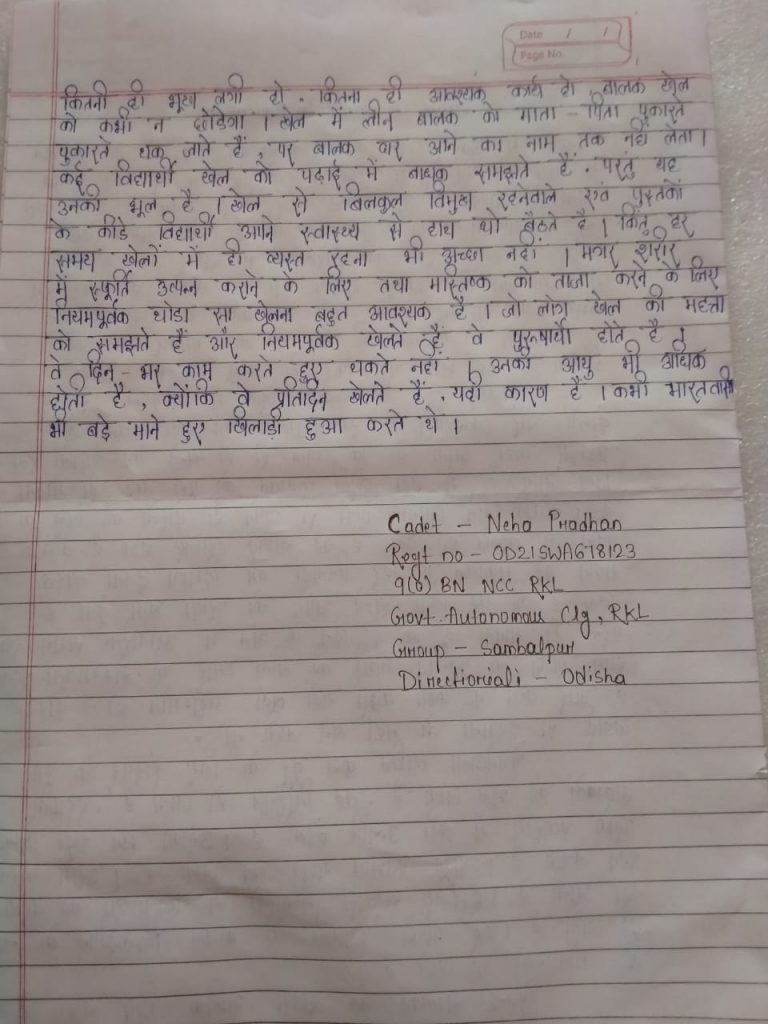 Date / /
Page No.
कितनी ही भूख लगी हो, कितना ही आवश्यक कार्य हो, बालक खेल
को कभी न छोडेगा । खेल में लीन बालक को माता - पिता पुकारते
पुकारते थक जाते हैं, पर बालक घर आने का नाम तक नहीं लेता।
कई विद्यार्थी खेल को पढाई में बाधक समझते हैं, परंतु यह
उनकी भूल है । खेल से बिलकुल विमुख रहनेवाले एवं पुस्तकों
के कीडे विद्यार्थी अपने स्वास्थ्य से हाथ धो बैठते है । किंतु हर
समय खेलों में ही व्यस्त रहना भी अच्छा नहीं । मगर शरीर
में स्फूर्ति उत्पन्न कराने के लिए तथा मस्तिष्क को ताजा करने के लिए
नियमपूर्वक थोडा सा खेलना बहुत आवश्यक है । जो लोग खेल की महत्ता
को समझते हैं और नियमपूर्वक खेलते हैं वे पुरुषार्थी होते है ।
वे दिन - भर काम करते हुए थकते नहीं । उनकी आयु भी अधिक
होती है, क्योंकि वे प्रतिदिन खेलते हैं, यही कारण हैं । कभी भारतवासी
भी बड़े माने हुए खिलाड़ी हुआ करते थे ।
Cadet - Neha Pradhan
Regt no - OD21SWA678123
9(O) BN NCC RKL
Govt. Autonomous Clg, RKL
Group - Sambalpur
Directioriali - Odisha